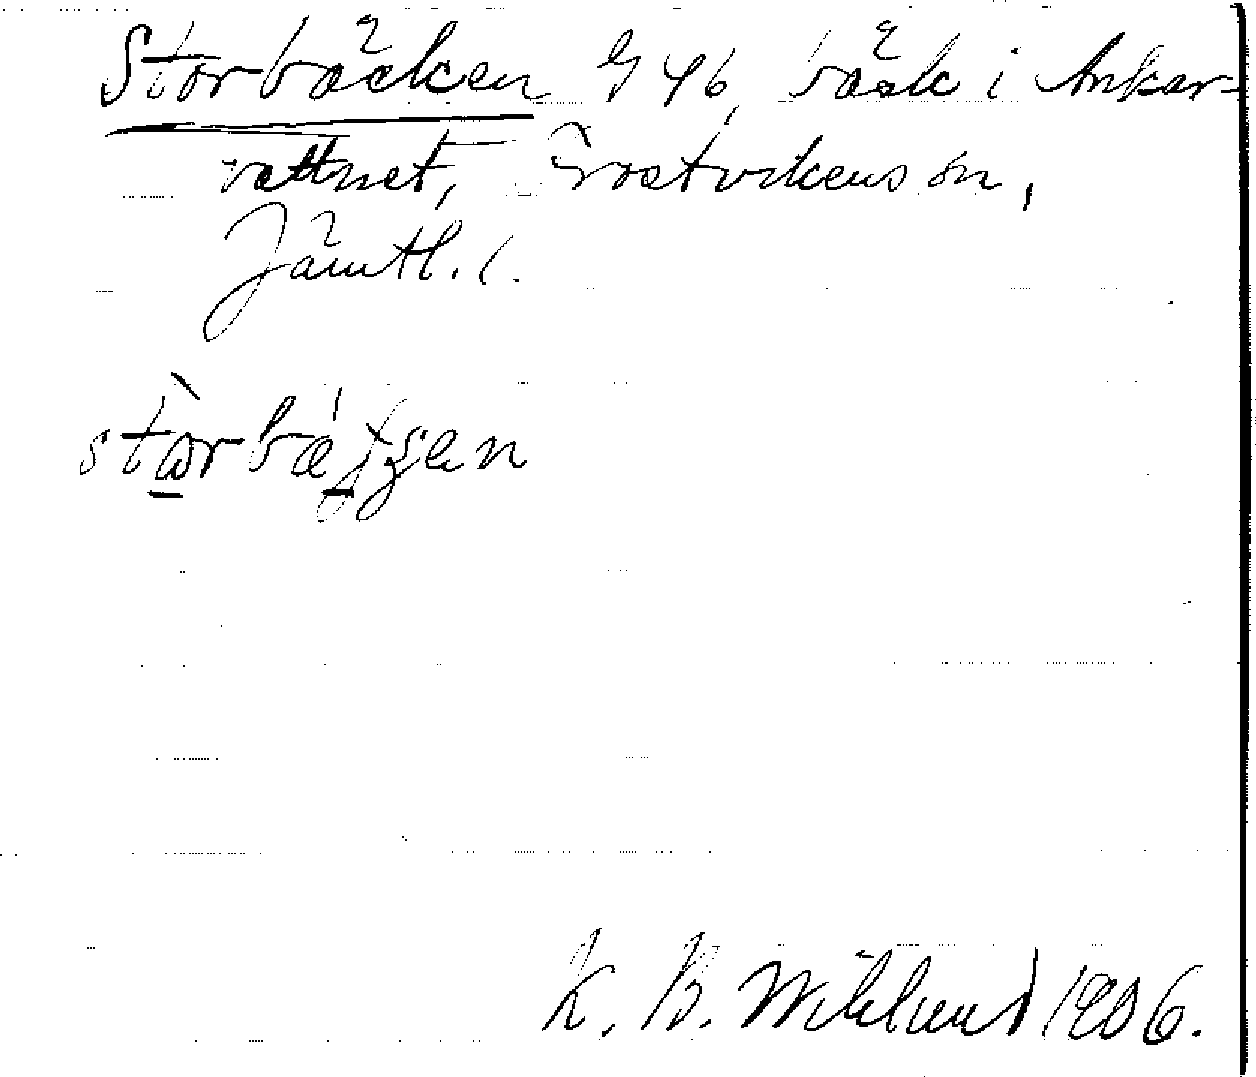 Storbäcken G 46, bäck i Ankar-
vattnet, Frostvikens sn,
Jämtl. l.
K. B. Wiklund 1906.